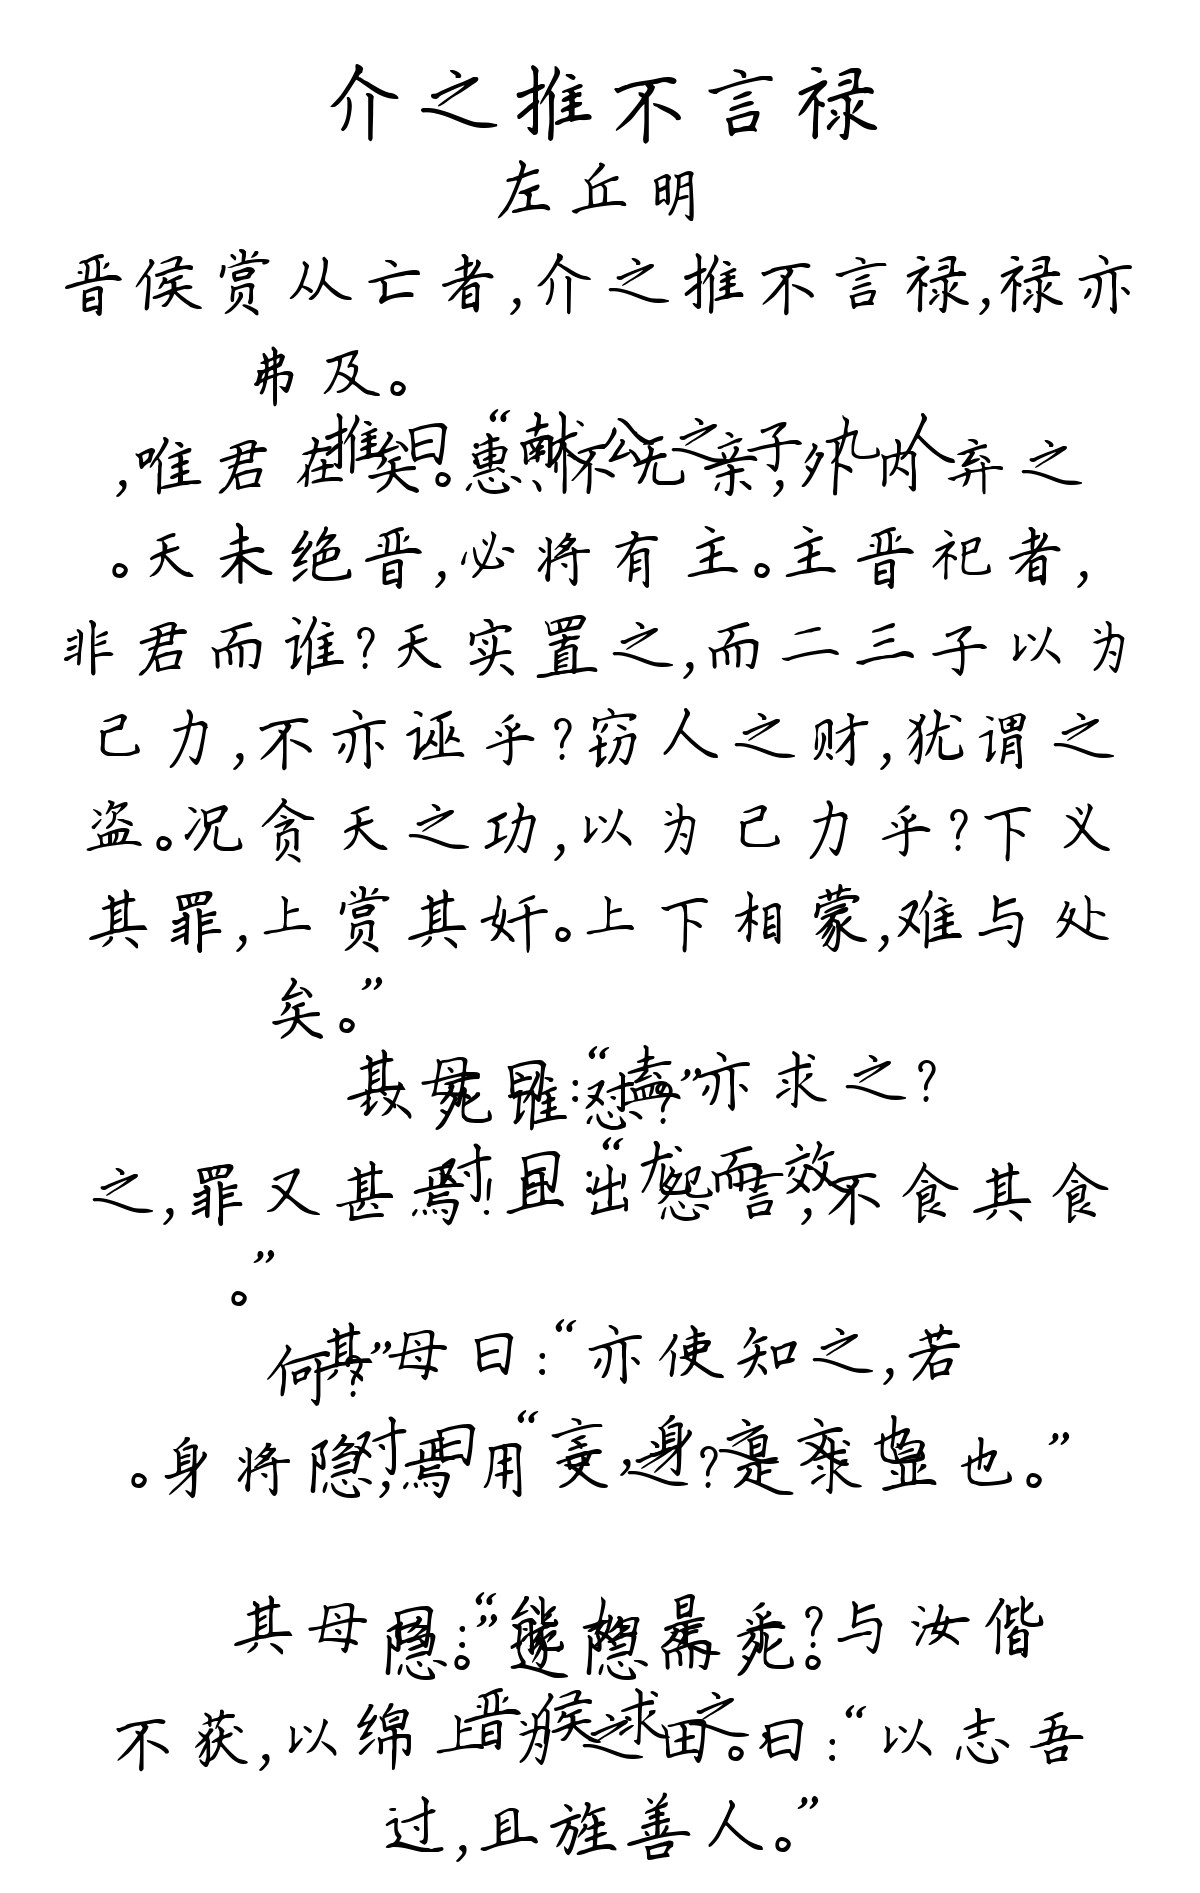 介之推不言禄
左丘明
晋侯赏从亡者,介之推不言禄,禄亦
弗及。
推曰:“献公之子九人
,唯君在矣。惠、怀无亲,外内弃之
。天未绝晋,必将有主。主晋祀者,
非君而谁?天实置之,而二三子以为
己力,不亦诬乎?窃人之财,犹谓之
盗。况贪天之功,以为己力乎?下义
其罪,上赏其奸。上下相蒙,难与处
矣。”
其母曰:“盍亦求之?
以死谁怼?”
对曰:“尤而效
之,罪又甚焉!且出怨言,不食其食
。”
其母曰:“亦使知之,若
何?”
对曰:“言,身之文也
。身将隐,焉用文之?是求显也。”
其母曰:“能如是乎?与汝偕
隐。”遂隐而死。
晋侯求之
不获,以绵上为之田。曰:“以志吾
过,且旌善人。”